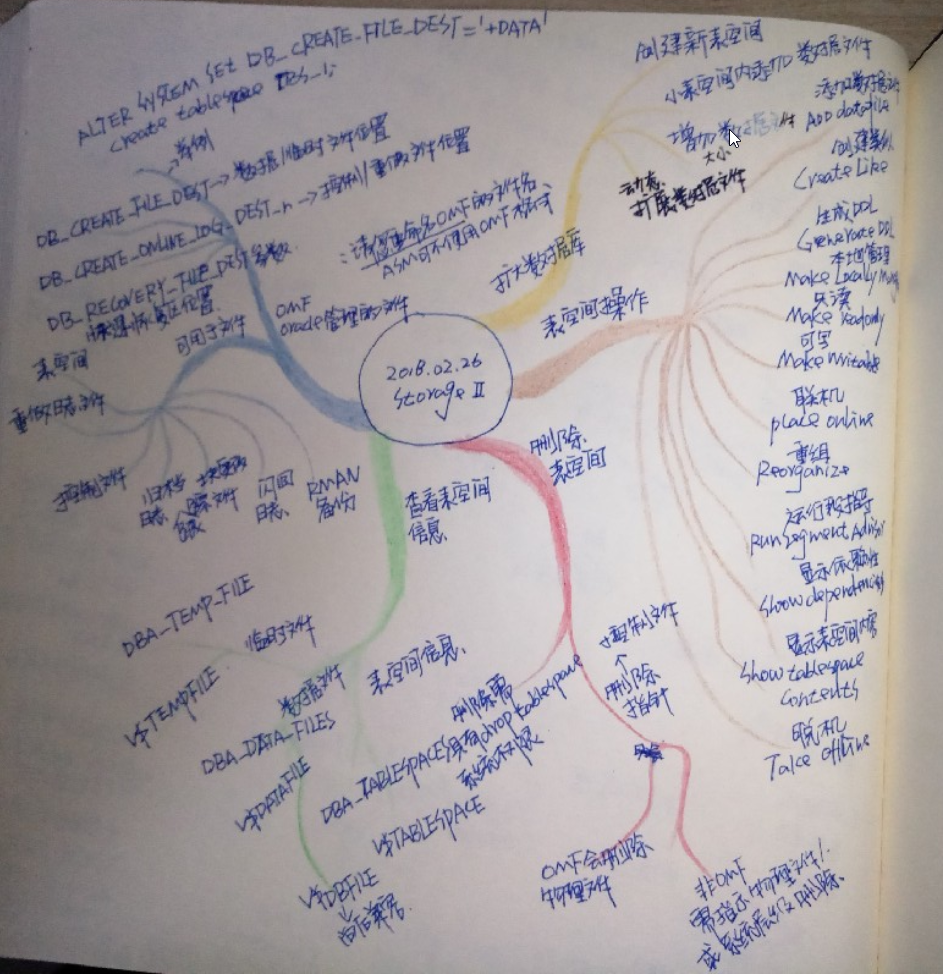 ALTER SYSTEM SET DB_CREATE_FILE_DEST='+DATA'
create tablespace TBS_1;
举例
DB_CREATE_FILE_DEST→数据/临时文件位置
DB_CREATE_ONLINE_LOG_DEST_n→控制/重做文件位置
DB_RECOVERY_FILE_DEST
快速恢复区位置
OMF
oracle管理的文件
:请勿重命名OMF的文件名
ASM可不使用OMF格式
可用于文件
表空间
重做日志文件
控制文件
归档
日志
块更改
跟踪文件
闪回
日志
RMAN
备份
2018.02.26
Storage II
扩大数据库
创建新表空间
小表空间内添加数据文件
增加数据文件
大小
动态
扩展数据文件
表空间操作
添加数据文件
Add datafile
创建类似
Create Like
生成DDL
Generate DDL
本地管理
Make Locally
只读
Make readonly
可写
Make Writable
联机
place online
重组
Reorganize
运行段指导
Run Segment Advisor
显示依赖性
Show dependencies
显示表空间内容
Show tablespace
Contents
脱机
Take offline
删除
表空间
删除需
具有drop tablespace
系统权限
控制文件
↑
删除
指针
OMF会删除
物理文件
非OMF
需指示物理文件/
或系统层级删除.
查看表空间
信息
表空间信息
DBA_TABLESPACES
V$TABLESPACE
临时文件
DBA_TEMP_FILE
V$TEMPFILE
数据文件
DBA_DATA_FILES
V$DATAFILE
V$DBFILE
↓
向后兼容